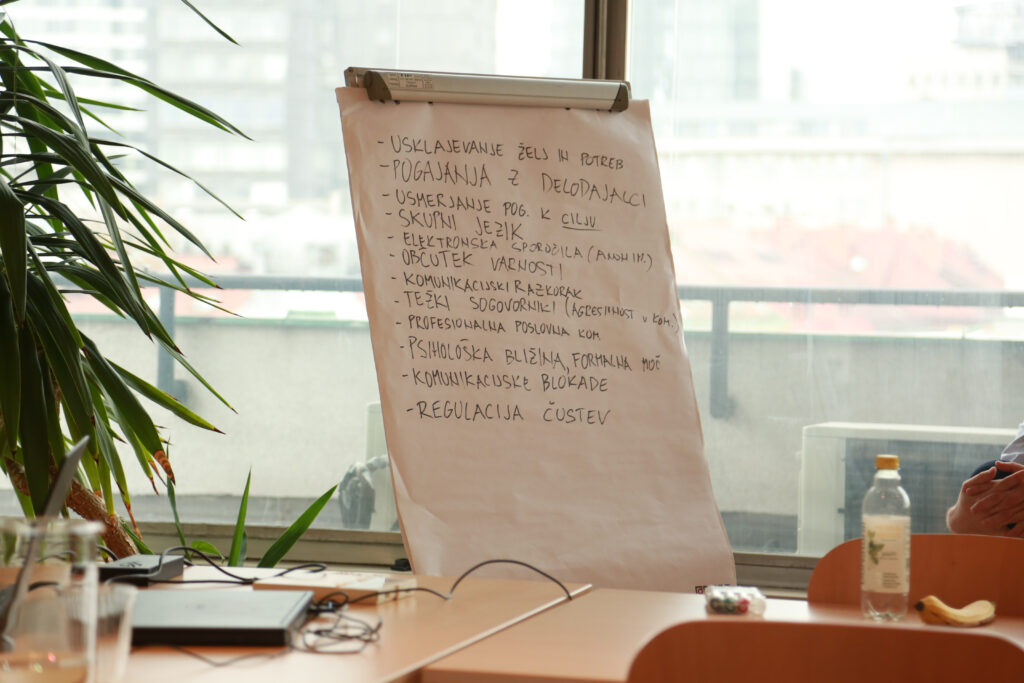 - USKLAJEVANJE ŽELJ IN POTREB
- POGAJANJA Z DELODAJALCI
- USMERJANJE POG. K CILJU
- SKUPNI JEZIK
- ELEKTRONSKA SPOROČILA (ANONIM.)
- OBČUTEK VARNOSTI
- KOMUNIKACIJSKI RAZKORAK
- TEŽKI SOGOVORNIKI (AGRESIVNOST V KOM.)
- PROFESIONALNA POSLOVNA KOM.
- PSIHOLOŠKA BLIŽINA, FORMALNA MOČ
- KOMUNIKACIJSKE BLOKADE
- REGULACIJA ČUSTEV